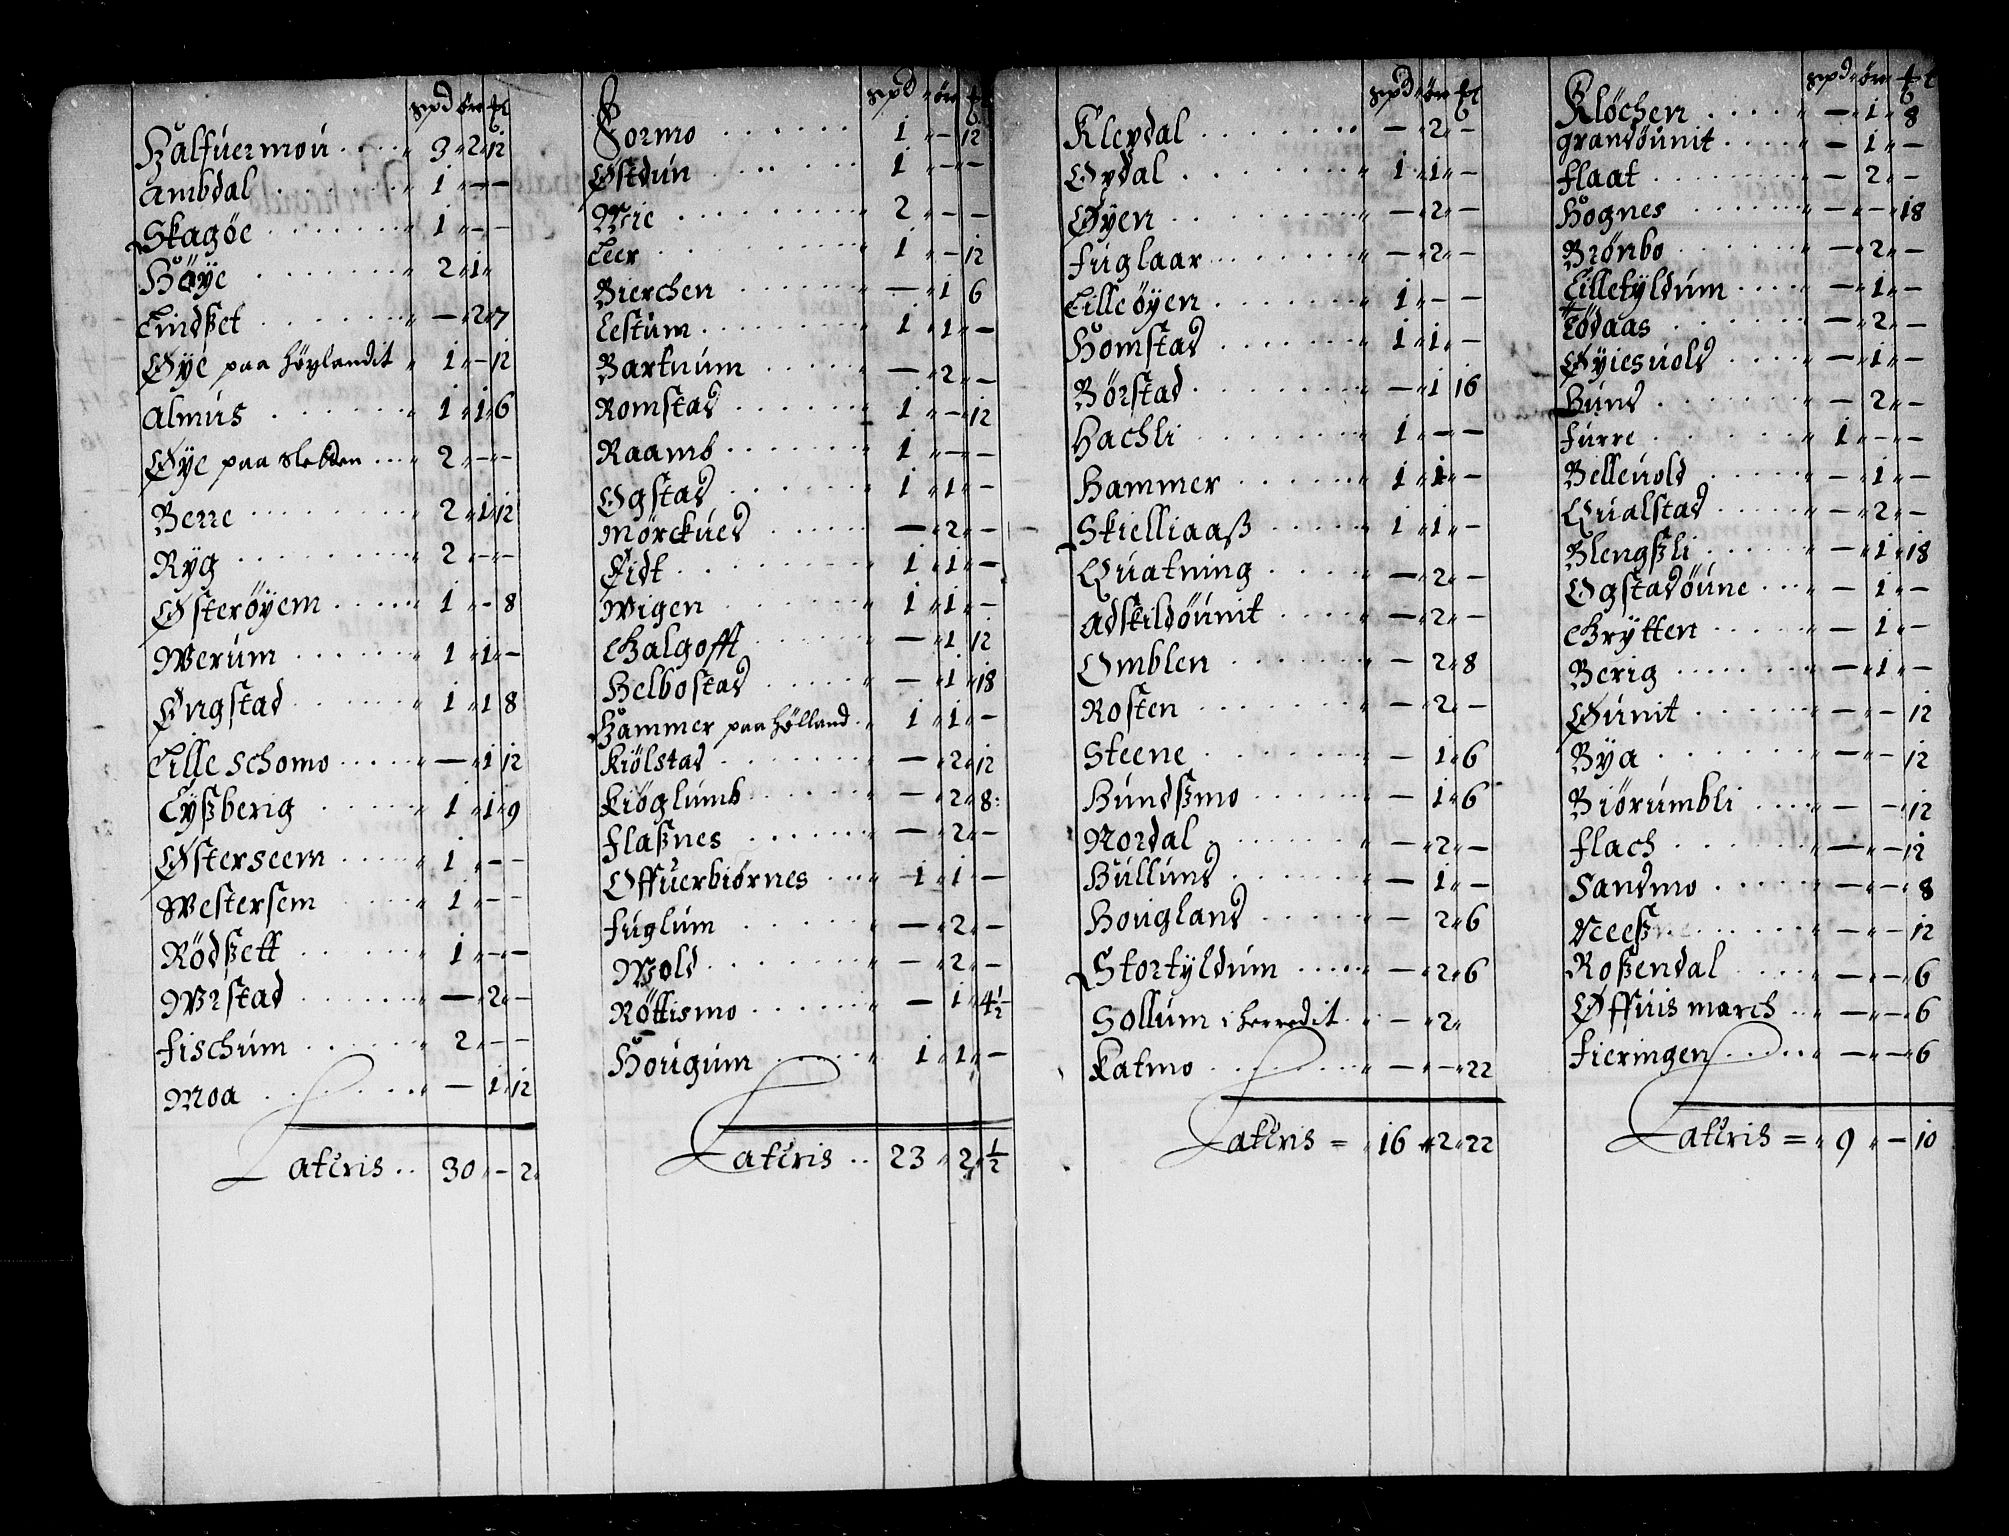 spd ør #
Halfuermou .... 3 2 12
Ambdal ...... 1 - -
Skagöe ...... 1 - -
Höÿe ...... 2 1
Lindßet ...... - 2 7
Øÿe paa höylandit 1 - 12
Almus ...... 1 1 6
Øÿe paa sletten ... 2 - -
Berre ...... 2 1 12
Ryg ...... 2 - -
Østerøÿem ..... 1 - 8
Werum ...... 1 1 -
Øngstad ...... 1 1 8
Lille Schomo ..... - 1 12
Lyßberig ..... 1 1 9
Østerseem .... 1 - -
Westersem .... 1 - -
Rödßett ...... 1 - -
Wrstad ...... - 2 -
Fischum ...... 2 - -
Moa ...... - 1 12
Lateris .. 30 - 2
spd ør #
Formo ...... 1 - 12
Østdun ...... 1 - -
Wie ...... 2 - -
Leer ...... 1 - 12
Bierchen ...... - 1 6
Lestum ...... 1 1 -
Bartnum ...... - 2 -
Romstad ...... 1 - 12
Raamb ...... 1 - -
Ogstad ...... 1 1 -
Mörckued ...... - 2 -
Eidt ...... 1 1 -
Wigen ...... 1 1 -
Galgofft ...... - 1 12
Helbostad ..... - 1 18
Hammer paa hölland . 1 1 -
Kiölstad ...... - 2 12
Kiöglumb ...... - 2 8
Flaßnes ...... - 2 -
Offuerbiörnes ... 1 1 -
Fuglum ...... - 2 -
Wold ...... - 2 -
Röttismo ...... - 1 4½
Hougum ..... 1 1 -
Lateris .. 23 2 ½
spd ør #
Kleydal ...... - 2 -
Øydal ...... 1 1 -
Øyen ...... - 2 -
Fuglaar ...... - 2 -
Lilleöyen ...... 1 - -
Homstad ...... 1 1 -
Börstad ...... - 1 16
Hachli ...... 1 - -
Hammer ...... 1 1 -
Skielliaaß ..... 1 1 -
Quatning .... - 2 -
Adskildöunit .... - 2 -
Omblen ...... - 2 8
Rosten ...... - 2 -
Steene ...... - 1 6
Hundßmo ...... - 1 6
Nordal ...... - 2 -
Hullund ...... - 1 -
Hougland ...... - 2 6
Stortyldum ..... - 2 6
Sollum i herredit . - 2
Katmo ...... - - 22
Lateris = 16 2 22
spd ør #
Klöchen ..... - 1 8
Grandöunit .... - 1 -
Flaat ...... - 2 -
Hognes ...... - - 18
Brönbo ...... - 2 -
Lilletyldum .... - 1 -
Tödaas ...... - 2 -
Øyiesuold .... - 1 -
Hund ...... - 2 -
Furre ...... 1 - -
Belleuold .... - 1 -
Qualstad .... - 2 -
Blengßli ..... - 1 18
Ogstadöune ... - 1 -
Grytten ..... - 1 -
Berig ...... - 1 -
Öunit ...... - - 12
Bya ...... - - 12
Biörumbli .... - - 12
Flach ...... - - 12
Sandmo ..... - - 8
Neeß ...... - - 12
Roßendal .... - - 6
Øffuis march .. - - 6
Fieringen ..... - - 6
Lateris = 9 - 10